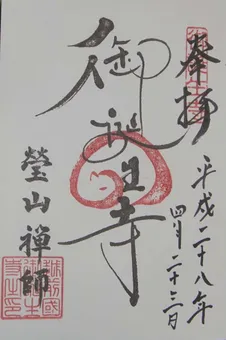 奉拝
平成二十八年
四月二十三日
御誕生寺
瑩山禅師